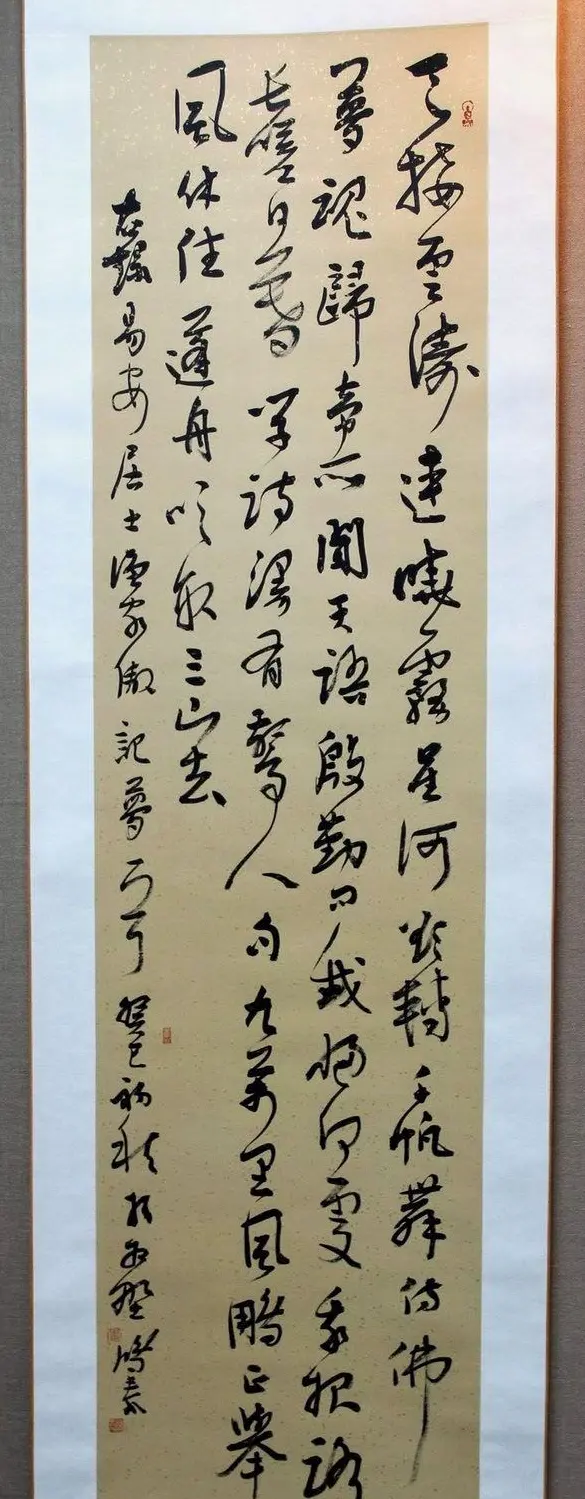 天接雲濤連曉霧星河欲轉千帆舞仿佛
夢魂歸帝所聞天語殷勤問我歸何處我報路
長嗟日暮學詩漫有驚人句九萬里風鵬正舉
風休住蓬舟吹取三山去
右錄易安居士漁家傲記夢 癸巳初秋 鴻泰